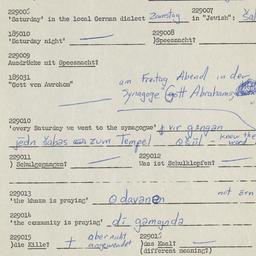 229006 229007
'Saturday' in the local German dialect Zamstag in "Jewish":
185010 229008
'Saturday night' — )Speesnacht?
229009
Ausdrücke mit Speesnacht?
185031 am Freitag Abend in der
"Gott von Awrohom" Synagoge Gott Abrahams
229010
'every Saturday we went to the synagogue' vir gangan
jedn šabas zum Tempel
229011 229012
) Schulgegangen? — Was ist Schulklopfen? —
229013
'the khazn is praying' davanen not
229014
'the community is praying' di gamända
229015 229016
)die Kille? + aber nicht angewendet )das Kael? —
(different meaning?)